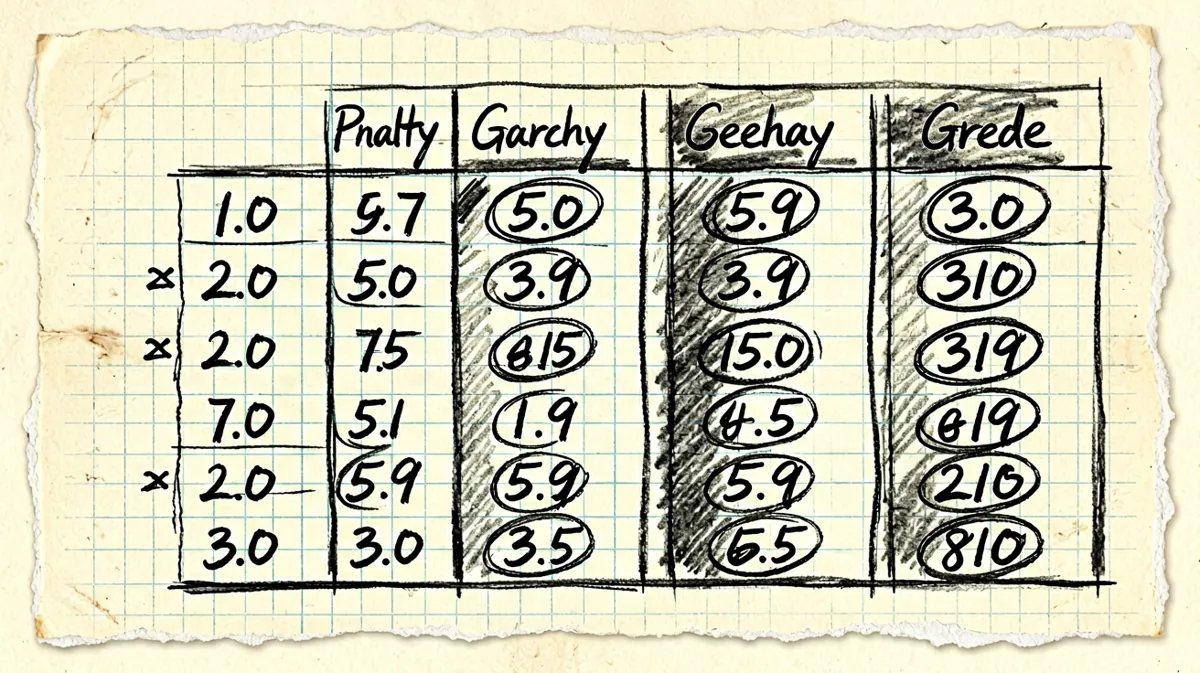 Pnalty Garchy Geehay Grede
1.0 5.7 5.0 5.9 3.0
x 2.0 5.0 3.9 3.9 310
x 2.0 7.5 15.0 319
7.0 5.1 1.9 4.5 619
x 2.0 5.9 5.9 5.9 210
3.0 3.0 3.5 6.5 810